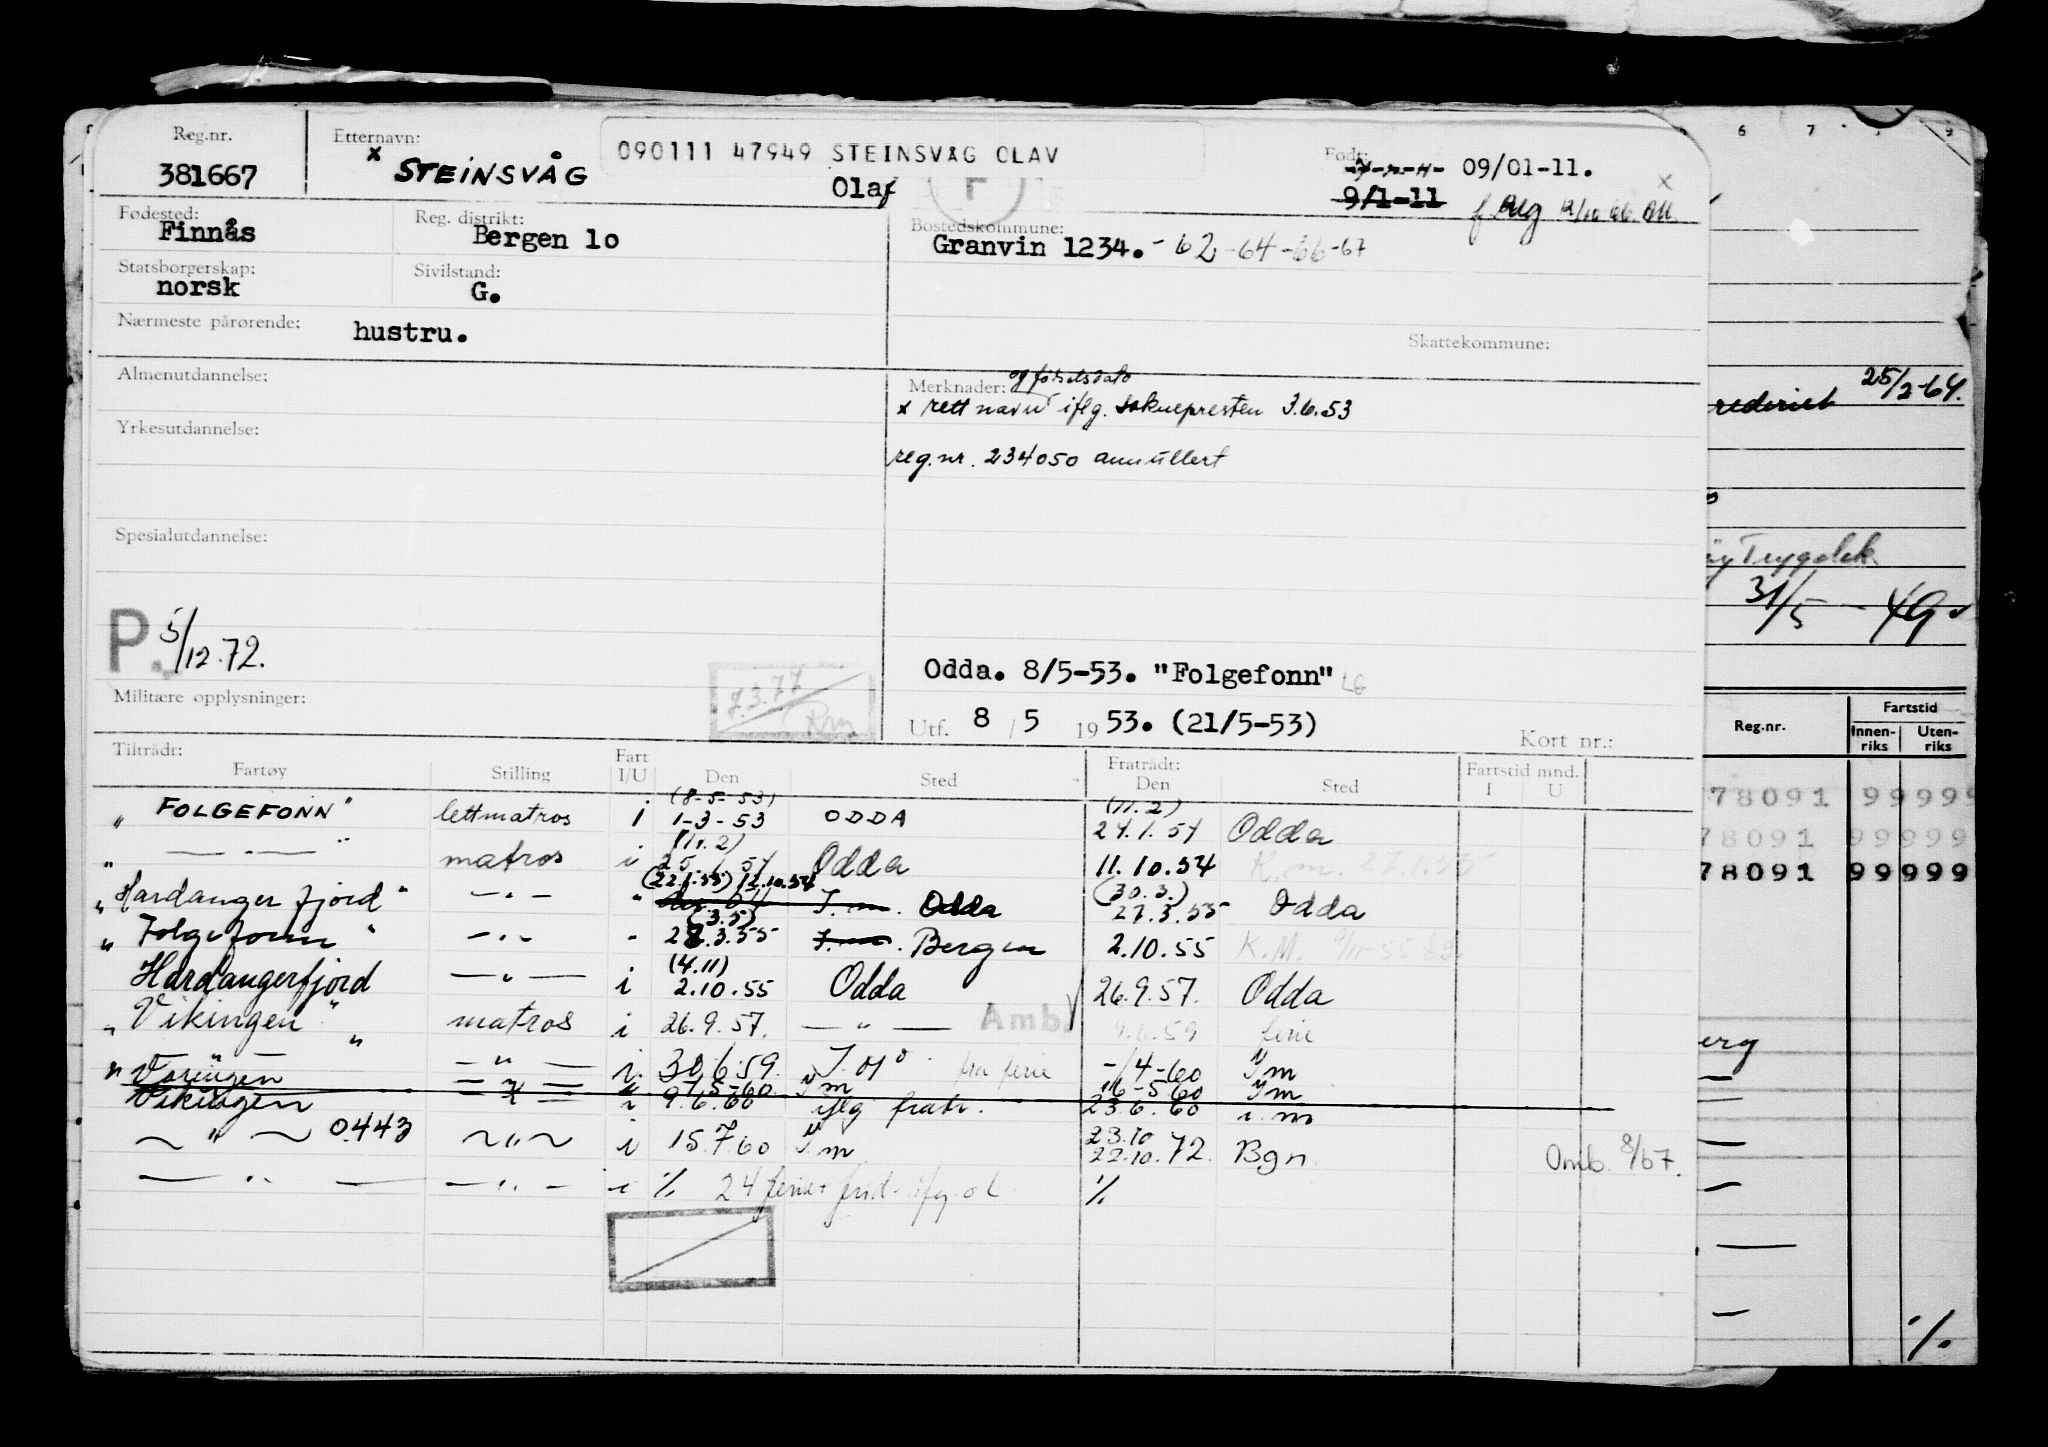 Reg.nr. Etternavn: 090111 47949 STEINSVÅG OLAV Født:
381667 x STEINSVÅG Olaf 09/01-11.
9/1-11
Fødested: Reg. distrikt: Bostedskommune:
Finnås Bergen 10 Granvin 1234. - 62 - 64 - 66 - 67
Statsborgerskap: Sivilstand:
norsk G.
Nærmeste pårørende: hustru. Skattekommune:
Almenutdannelse: Merknader: og fødselsdato
x rett navn iflg. soknepresten 3.6.53
Yrkesutdannelse:
reg.nr. 234050 annullert
Spesialutdannelse:
P. 5/12.72.
Odda. 8/5-53. "Folgefonn"
7.3.77
Militære opplysninger: Utf. 8 / 5 1953. (21/5-53) Kort nr.:
Tiltrådt: Fratrådt:
Fartøy Stilling Fart I/U Den Sted Den Sted Fartstid mnd. I U
(8-5-53) (11.2)
" FOLGEFONN " lettmatros i 1-3-53 ODDA 24.1.54 Odda
(11.2)
" — " — " matros i 25.1.54 Odda 11.10.54 K.m. 27.1.55
12.10.54 (30.3.)
" Hardangerfjord " — " — " I.m. Odda 27.3.55 Odda
(3.5)
" Folgefonn " — " — " 28.3.55 I.m. Bergen 2.10.55 K.M.
(4.11)
Hardangerfjord — " — i 2.10.55 Odda 26.9.57. Odda
" Vikingen " matros i 26.9.57. — " — Amb. ferie
" — " — i 30.6.59. fra ferie -/4-60 I m
Vøringen — " — 16-5-60 I m
Vikingen — " — i 9.6.60 iflg fratr. 23.6.60 i.m
~ " ~ 0443 ~ " ~ i 15.7.60 I m 23.10 22.10.72. Bgn Omb. 8/67.
— " — — " — i % 24 ferie + %
6 7 9
rederiet 25/2-64.
Trygdek.
31/5 - 49
Reg.nr. Fartstid
Innen-riks Uten-riks
78091 99999
78091 99999
78091 99999
erg
%